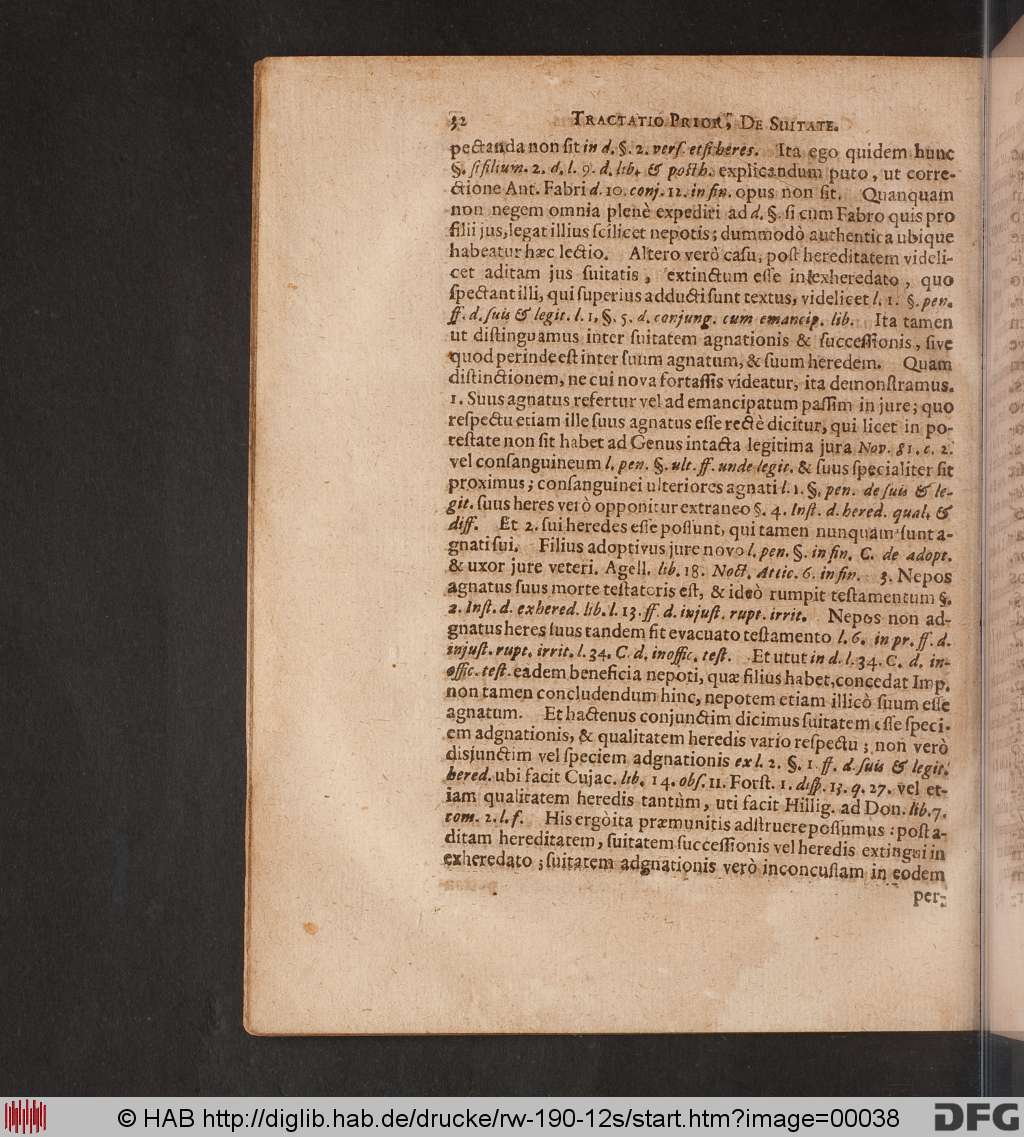 32 TRACTATIO PRIOR, DE SUITATE.
pectanda non ſit in d. §. 2. verſ. etſi heres. Ita ego quidem hunc
§. ſi filium. 2. d. l. 9. d. lib. & poſth. explicandum puto, ut corre-
ctione Ant. Fabri d. 10. conj. 12. in fin. opus non ſit. Quanquam
non negem omnia plenè expediri ad d. §. ſi cum Fabro quis pro
filii jus, legat illius ſcilicet nepotis; dummodò authentica ubique
habeatur hæc lectio. Altero verò caſu, poſt hereditatem videli-
cet aditam jus ſuitatis, extinctum eſſe in exheredato, quo
ſpectant illi, qui ſuperius adducti ſunt textus, videlicet l. 1. §. pen.
ff. d. ſuis & legit. l. 1, §. 5. d. conjung. cum emancip. lib. Ita tamen
ut diſtinguamus inter ſuitatem agnationis & ſucceſſionis, ſive
quod perinde eſt inter ſuum agnatum, & ſuum heredem. Quam
diſtinctionem, ne cui nova fortaſſis videatur, ita demonſtramus.
1. Suus agnatus refertur vel ad emancipatum paſſim in jure; quo
reſpectu etiam ille ſuus agnatus eſſe rectè dicitur, qui licet in po-
teſtate non ſit habet ad Genus intacta legitima jura Nov. 81. c. 2.
vel conſanguineum l. pen. §. ult. ff. unde legit. & ſuus ſpecialiter ſit
proximus; conſanguinei ulteriores agnati l. 1. §. pen. de ſuis & le-
git. ſuus heres verò opponitur extraneo §. 4. Inſt. d. hered. qual. &
diff. Et 2. ſui heredes eſſe poſſunt, qui tamen nunquam ſunt a-
gnati ſui. Filius adoptivus jure novo l. pen. §. in fin. C. de adopt.
& uxor jure veteri. Agell. lib. 18. Noct. Attic. 6. in fin. 3. Nepos
agnatus ſuus morte teſtatoris eſt, & ideò rumpit teſtamentum §.
2. Inſt. d. exhered. lib. l. 13. ff. d. injuſt. rupt. irrit. Nepos non ad-
gnatus heres ſuus tandem fit evacuato teſtamento l. 6. in pr. ff. d.
injuſt. rupt. irrit. l. 34. C. d. inoffic. teſt. Et utut in d. l. 34. C. d. in-
offic. teſt. eadem beneficia nepoti, quæ filius habet, concedat Imp.
non tamen concludendum hinc, nepotem etiam illicò ſuum eſſe
agnatum. Et hactenus conjunctim dicimus ſuitatem eſſe ſpeci-
em adgnationis, & qualitatem heredis vario reſpectu; non verò
disjunctim vel ſpeciem adgnationis ex l. 2. §. 1. ff. d. ſuis & legit.
hered. ubi facit Cujac. lib. 14. obſ. 11. Forſt. 1. diſp. 13. q. 27. vel et-
iam qualitatem heredis tantùm, uti facit Hillig. ad Don. lib. 7.
com. 2. l. f. His ergò ita præmunitis adſtruere poſſumus: poſt a-
ditam hereditatem, ſuitatem ſucceſſionis vel heredis extingui in
exheredato; ſuitatem adgnationis verò inconcuſſam in eodem
per-
© HAB http://diglib.hab.de/drucke/rw-190-12s/start.htm?image=00038
DFG